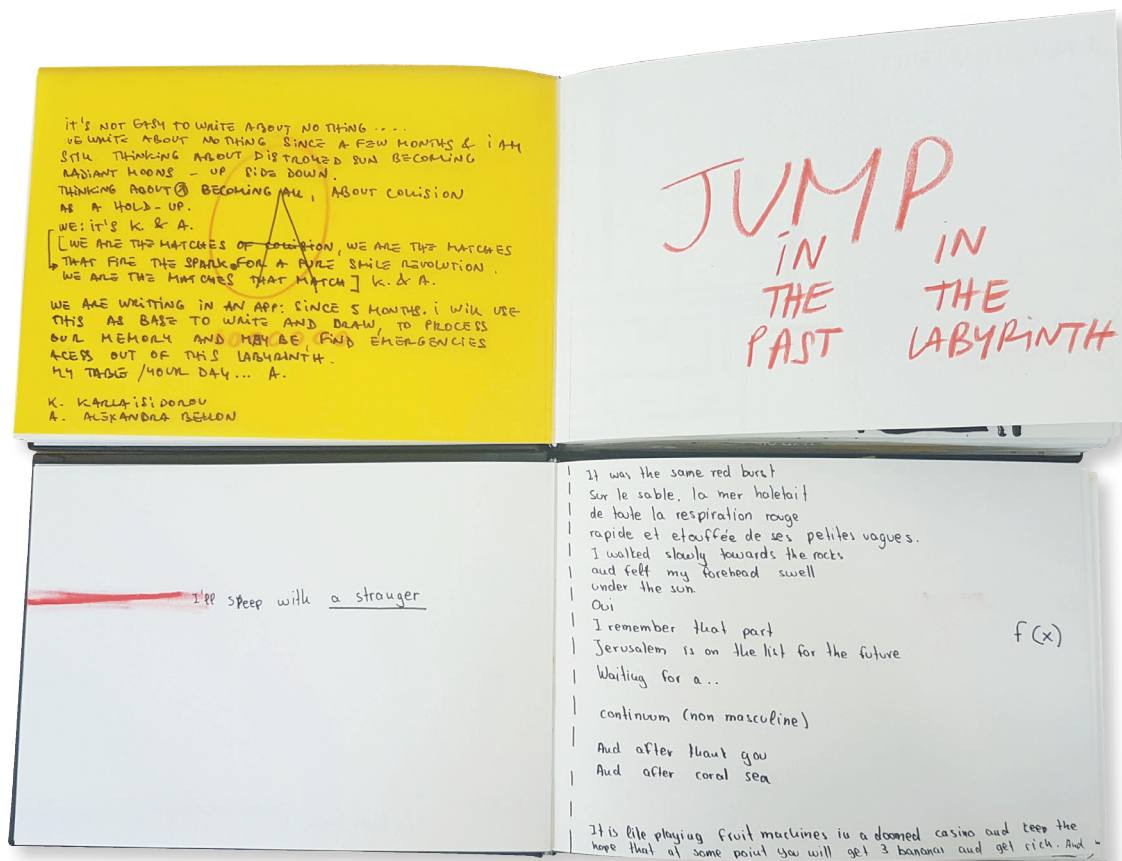 iT'S NOT EASY TO WRITE ABOUT NO THING ....
WE WRITE ABOUT NO THING SINCE A FEW MONTHS & i AM
STILL THINKING ABOUT DISTROYED SUN BECOMING
RADIANT MOONS - UP SIDE DOWN.
THINKING ABOUT BECOMING ALL, ABOUT COLLISION
AS A HOLD-UP.
WE: iT'S K. & A.
[WE ARE THE MATCHES OF COLLISION, WE ARE THE MATCHES
THAT FIRE THE SPARK FOR A PURE SMILE REVOLUTION.
WE ARE THE MATCHES THAT MATCH] K. & A.
WE ARE WRITTING IN AN APP: SINCE 5 MONTHS. i WILL USE
THIS AS BASE TO WRITE AND DRAW, TO PROCESS
OUR MEMORY AND MAY BE FIND EMERGENCIES
ACESS OUT OF THIS LABYRINTH.
MY TABLE /YOUR DAY... A.
K. KARLA iSiDOROU
A. ALEXANDRA BELLON
A
JUMP
iN THE PAST
iN THE LABYRiNTH
I'll sleep with a stranger
It was the same red burst
Sur le sable, la mer haletait
de toute la respiration rouge
rapide et etouffée de ses petites vagues.
I walked slowly towards the rocks
and felt my forehead swell
under the sun.
Oui
I remember that part
Jerusalem is on the list for the future
f(x)
Waiting for a..
continuum (non masculine)
And after thank you
And after coral sea
It is like playing fruit machines in a doomed casino and keep the
hope that at some point you will get 3 bananas and get rich. And